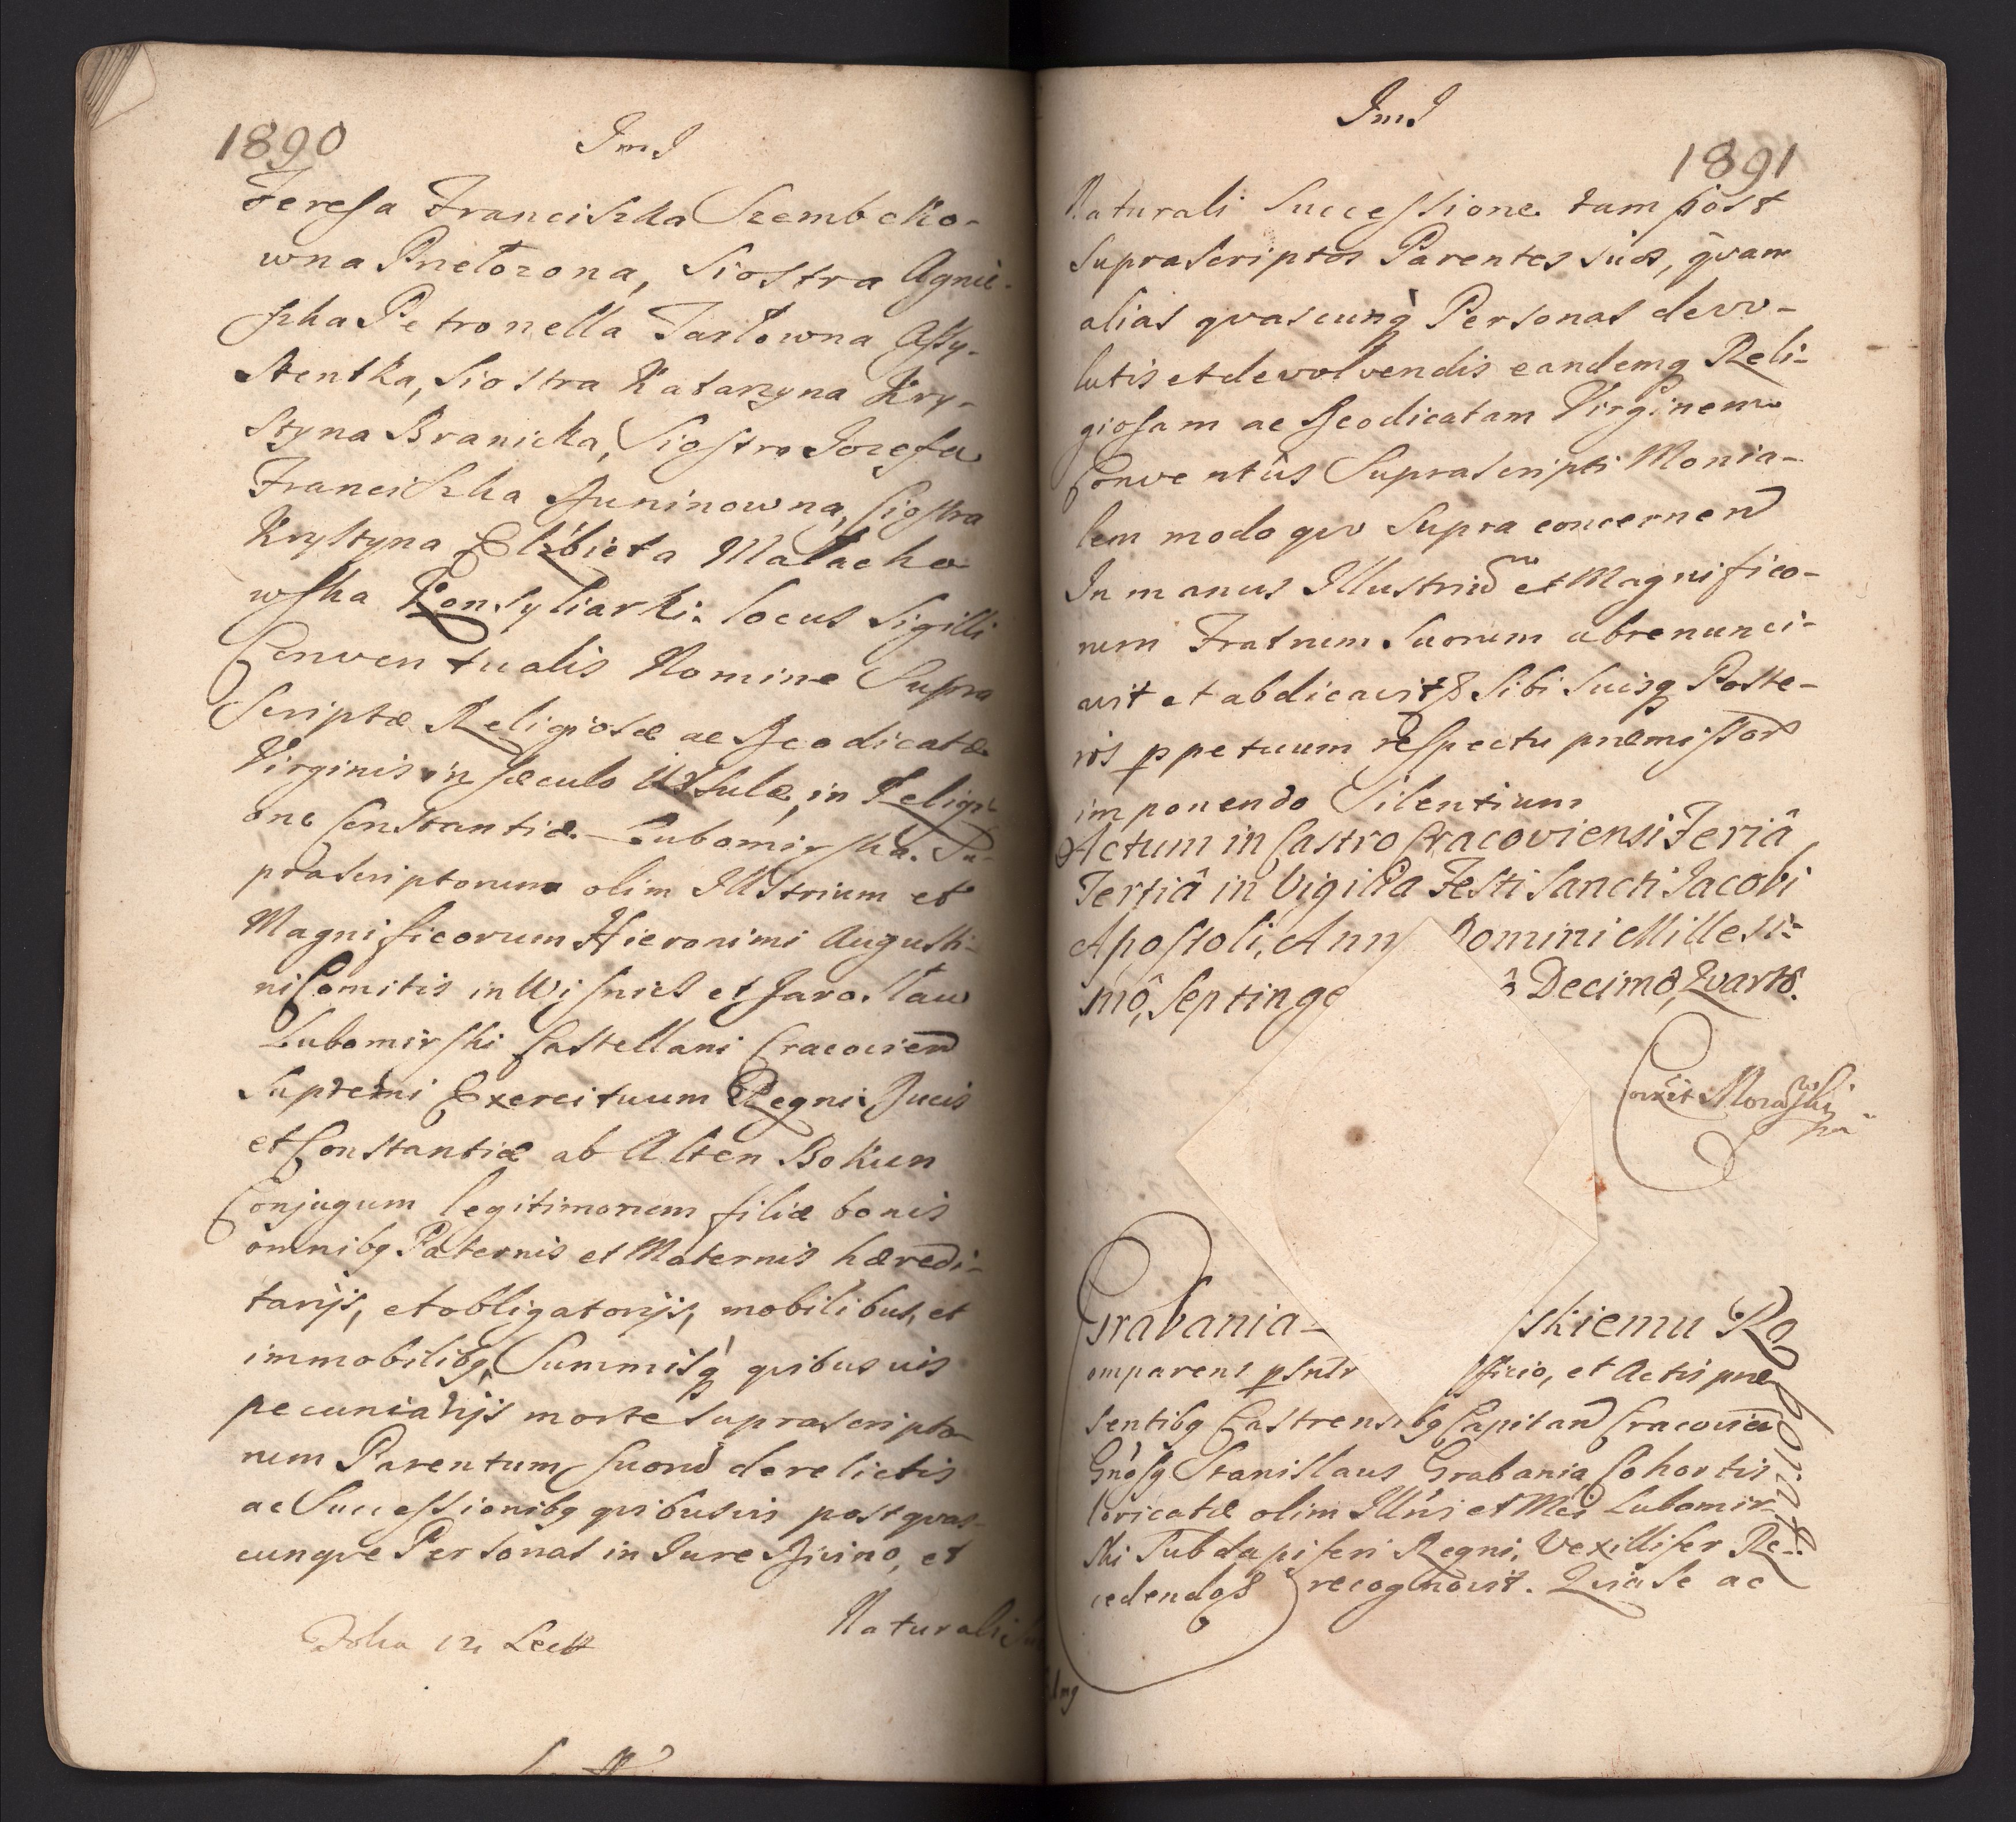 1890
Teresa Franciszka Szembeko-
wna Przełozona, Siostra Agnie-
szka Petronella Tarłowna Assy-
stentka, Siostra Katarzyna Kry-
styna Branicka, Siostra Jozefa
Franciszka Duninowna, Siostra
Krystyna Elżbieta Małacho
wska Konsyliarki: locus Sigilli
Conventualis Nomine Supra
Scriptæ Religiosæ ac Deodicatæ
Virginis in sæculo Ursulæ, in Religi
one Constantiæ Lubomirska. Su-
prascriptorum olim Illustrium et
Magnificorum Hieronimi Augusti-
ni Comitis in Wisnicz et Jarosław
Lubomirski Castellani Cracovien
Supremi Exercituum Regni Ducis
et Constantiæ ab Alten Bokun
Conjugum legitimorum filiæ bonis
omnibq Paternis et Maternis hæredi-
tarijs, et obligatorijs, mobilibus, et
immobilibq Summisq quibusvis
pecuniarijs morte suprascripto
rum Parentum suorũ derelictis
ac Successionibq quibusvis post quas-
cunque Personas in Jure Divino, et
Naturali
1891
Naturali Successione tam post
supraScriptos Parentes suos, qvam
alias qvascunq Personas devo-
lutis et devolvendis eandemq Reli-
giosam ac Deodicatam Virginem
Conventûs Suprascripti Monia-
lem modo qvo supra concernen
In manus Illustriũ et Magnifico-
rum Fratrum Suorum abrenunci-
avit et abdicavit Sibi suisq Poste-
ris ppetuum respectu præmissor
imponendo Silentium
Actum in Castro Cracoviensi Feriâ
Tertiâ in Vigilia Festi Sancti Jacobi
Apostoli, Ann Domini Millesi-
mô, Septinge Decimô, Qvartô.
Grabania- skiemu Ro
borat
omparens fficio, et Actis præ
sentibq Castrensibq Capitan Cracovien
Gnosq Stanislaus Grabania Cohortis
loricatæ olim Lubomir-
ski Subdapiferi Regni, Vexillifer Re-
cedendo recognovit. Quia se ac